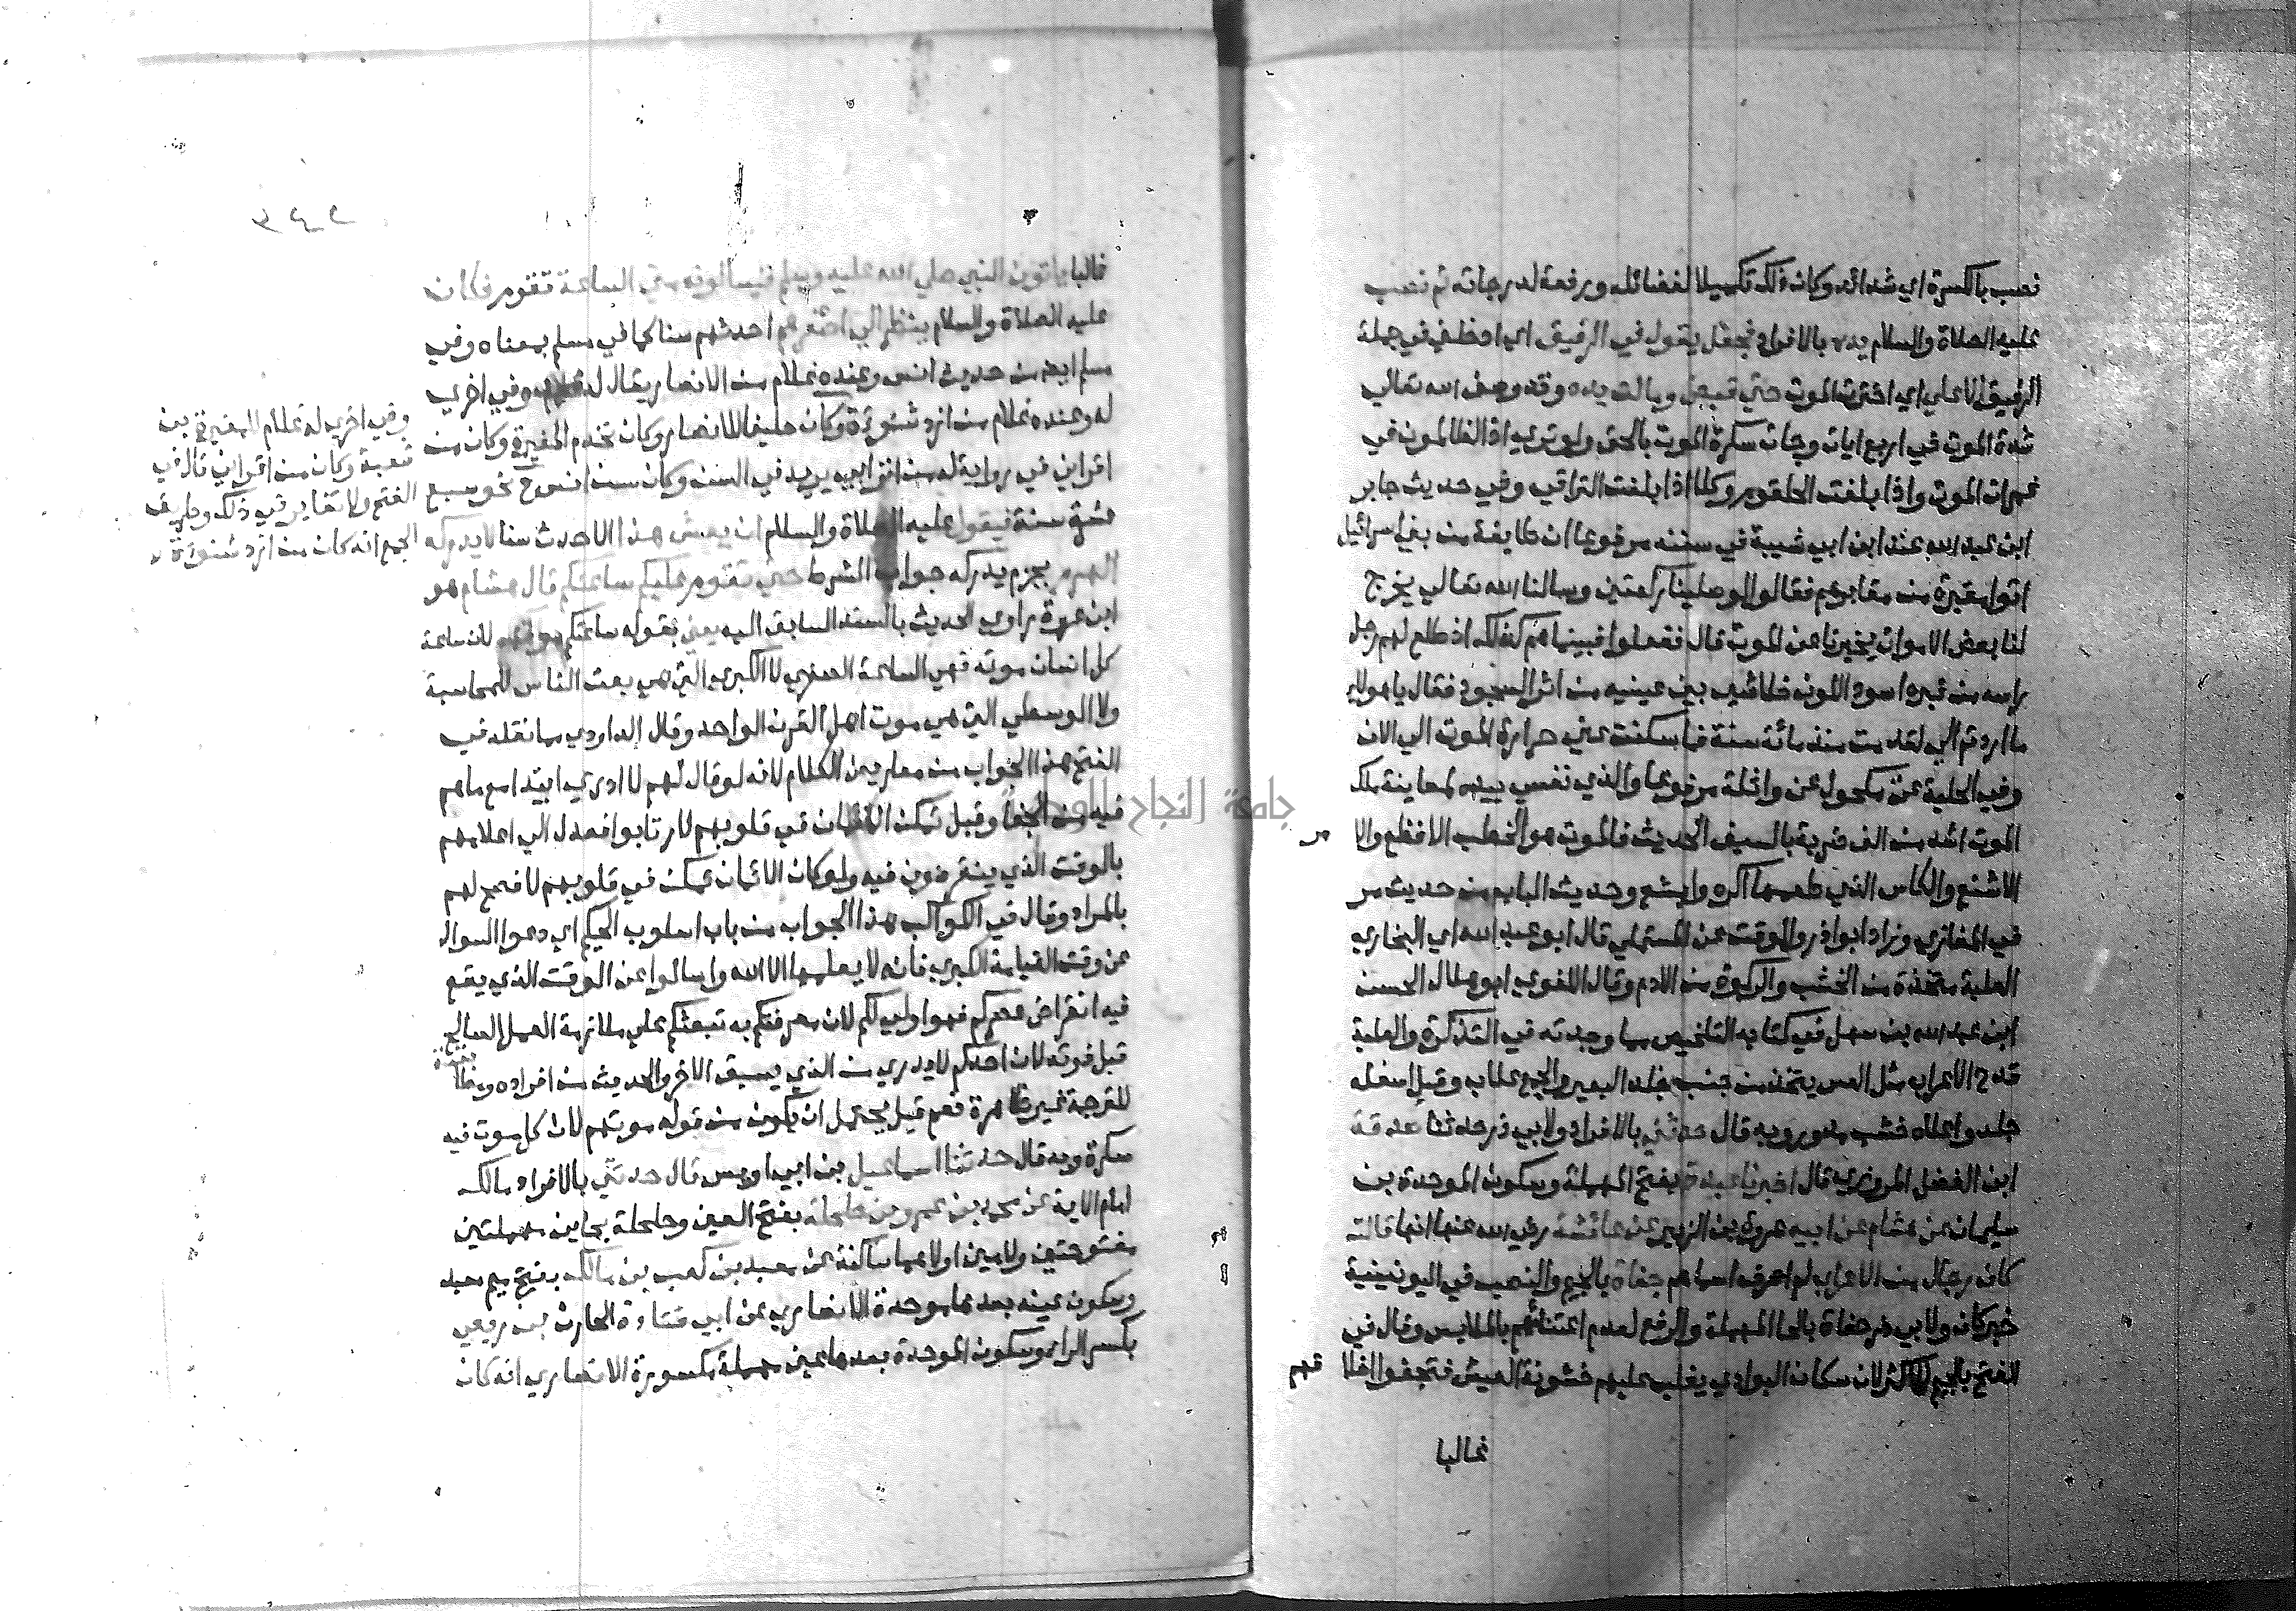 نصب بالكسرة اي شدائد وكان ذلك تكميلا لفضائله ورفعة لدرجاته ثم نصب
عليه الصلاة والسلام يده بالافراد فجعل يقول في الرفيق اي ادخلني في جملة
الرفيق الاعلي اي اخترت الموت حتي قبض ومالت يده وقد وصف الله تعالي
شدة الموت في اربع ايات وجات سكرة الموت بالحق ولو تري اذ الظالمون في
غمرات الموت واذا بلغت الحلقوم وكلا اذا بلغت التراقي وفي حديث جابر
ابن عبد الله عند ابن ابي شيبة في سننه مرفوعا ان طايفة من بني اسرائيل
اتوا مقبرة من مقابرهم فقالوا لو صلينا ركعتين وسالنا الله تعالي يخرج
لنا بعض الاموات يخبرنا عن الموت قال ففعلوا فبينما هم كذلك اذ طلع لهم رجل
راسه من قبره اسود اللون خلاشي بين عينيه من اثر السجود فقال يا هولاء
ما اردتم الي لقد مت منذ مائة سنة فما سكنت عني حرارة الموت الي الان
وفي الحلية عن مكحول عن واثلة مرفوعا والذي نفسي بيده لمعاينة ملك
الموت اشد من الف ضربة بالسيف الحديث فالموت هو الخطب الافظع والا
الاشنع والكاس الذي طعمها اكره وابشع وحديث الباب من حديث مر
في المغازي وزاد ابوا ذر والوقت عن المستملي قال ابو عبد الله اي البخاري
العلبة متخذة من الخشب والركوة من الادم وقال اللغوي ابو هلال الحسن
ابن عبد الله بن سهل في كتابه التلخيص مما وجدته في التذكرة والعلبة
قدح الاعراب مثل العس يتخذ من جنب جلد البعير والجمع علاب وقيل اسفله
جلد واعلاه خشب مدور وبه قال حدثني بالافراد ولابي ذر حدثنا صدقة
ابن الفضل المروزي قال اخبرنا عبدة بفتح المهملة وسكون الموحدة بن
سليمان عن هشام عن ابيه عروة بن الزبير عن عائشة رضي الله عنها انها قالت
كان رجال من الاعراب لم اعرف اسماهم جفاة بالجيم والنصب في اليونينية
خبر كان ولابي ذر حفاة بالحا المهملة والرفع لعدم اعتنائهم بالملابس وقال في
الفتح بالجيم للاكثر لان سكان البوادي يغلب عليهم خشونة العيش فتجفوا اخلا قهم
غالبا
٣٤٢
غالبا ياتون النبي صلي الله عليه وسلم فيسالونه متي الساعة تقوم فكان
عليه الصلاة والسلام ينظر الي اصغرهم احدثهم سنا كما في مسلم بمعناه وفي
مسلم ايضا من حديث انس وعنده غلام من الانصار يقال له محمد وفي اخري
له وعنده غلام من ازد شنوءة وكان حليفا للانصار وكان يخدم المغيرة وكان من
اقراني في رواية له من اترابي يريد في السن وكان سن انس ح نحو سبع
عشرة سنة فيقول عليه الصلاة والسلام ان يعش هذا الاحدث سنا لا يدركه
الهرم بجزم يدركه جواب الشرط حتي تقوم عليكم ساعتكم قال هشام هو
ابن عروة راوي الحديث بالسند السابق اليه يعني بقوله ساعتكم موتهم لان ساعة
كل انسان موته فهي الساعة الصغري لا الكبري التي هي بعث الناس للمحاسبة
ولا الوسطي التي هي موت اهل القرن الواحد وقال الداودي مما نقله في
الفتح هذا الجواب من معاريض الكلام لانه لو قال لهم لا ادري ابتدا مع ما هم
فيه من الجفا وقبل تمكن الايمان في قلوبهم لارتابوا فعدل الي اعلامهم
بالوقت الذي ينقرضون فيه ولو كان الايمان تمكن في قلوبهم لافصح لهم
بالمراد وقال في الكواكب هذا الجواب من باب اسلوب الحكيم اي دعوا السوال
عن وقت القيامة الكبري فانه لا يعلمها الا الله واسالوا عن الوقت الذي يقع
فيه انقراض عصركم فهو اولي لكم لان معرفتكم به تبعثكم علي ملازمة العمل الصالح
قبل فوته لان احدكم لا يدري من الذي يسبق الاخر والحديث من افراده ومطابقته
للترجمة غير ظاهرة نعم قيل يحتمل ان يكون من قوله موتهم لان كل موت فيه
سكرة وبه قال حدثنا اسماعيل بن ابي اويس قال حدثني بالافراد مالك
امام الاية عن محمد بن عمرو بن حلحلة بفتح العين وحلحلة بحاين مهملتين
مفتوحتين ولامين اولاهما ساكنة عن معبد بن كعب بن مالك بفتح ميم معبد
وسكون عينه بعدها موحدة الانصاري عن ابي قتادة الحارث بن ربعي
بكسر الراء وسكون الموحدة بعدها عين مهملة مكسورة الانصاري انه كان
وفي اخري له غلام للمغيرة بن
شعبة وكان من اقراني قال في
الفتح ولا تغاير في ذلك وطريق
الجمع انه كان من ازد شنوءة
جامعة النجاح الوطنية